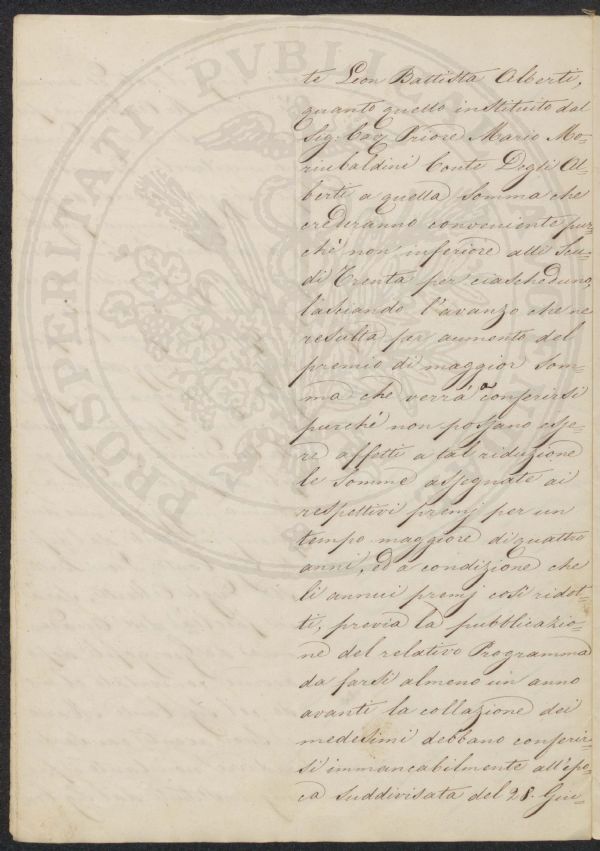 te Leon Battista Alberti,
quanto quello instituito dal
Sig. Cav. Priore Mario Mo-
riubaldini Conte Degli Al-
berti a quella somma che
crederanno conveniente pur-
ché non inferiore alli Scu-
di Trenta per ciascheduno,
lasciando l'avanzo che ne
resulta per aumento del
premio di maggior som-
ma che verrà a conferirsi
purché non possano esse-
re affetti a tal riduzione
le somme assegnate ai
respettivi premj per un
tempo maggiore di quattro
anni, ed a condizione che
li annui premj così ridot-
ti, previa la pubblicazio-
ne del relativo Programma
da farsi almeno un anno
avanti la collazione dei
medesimi debbano conferir-
si immancabilmente all'epo-
ca suddivisata del 28. Giu-
PROSPERITATI PVBLICAE